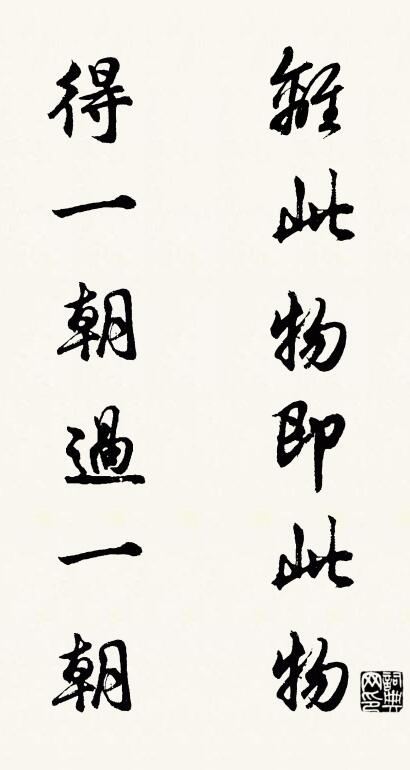 離此物即此物
得一朝過一朝
詞典網印